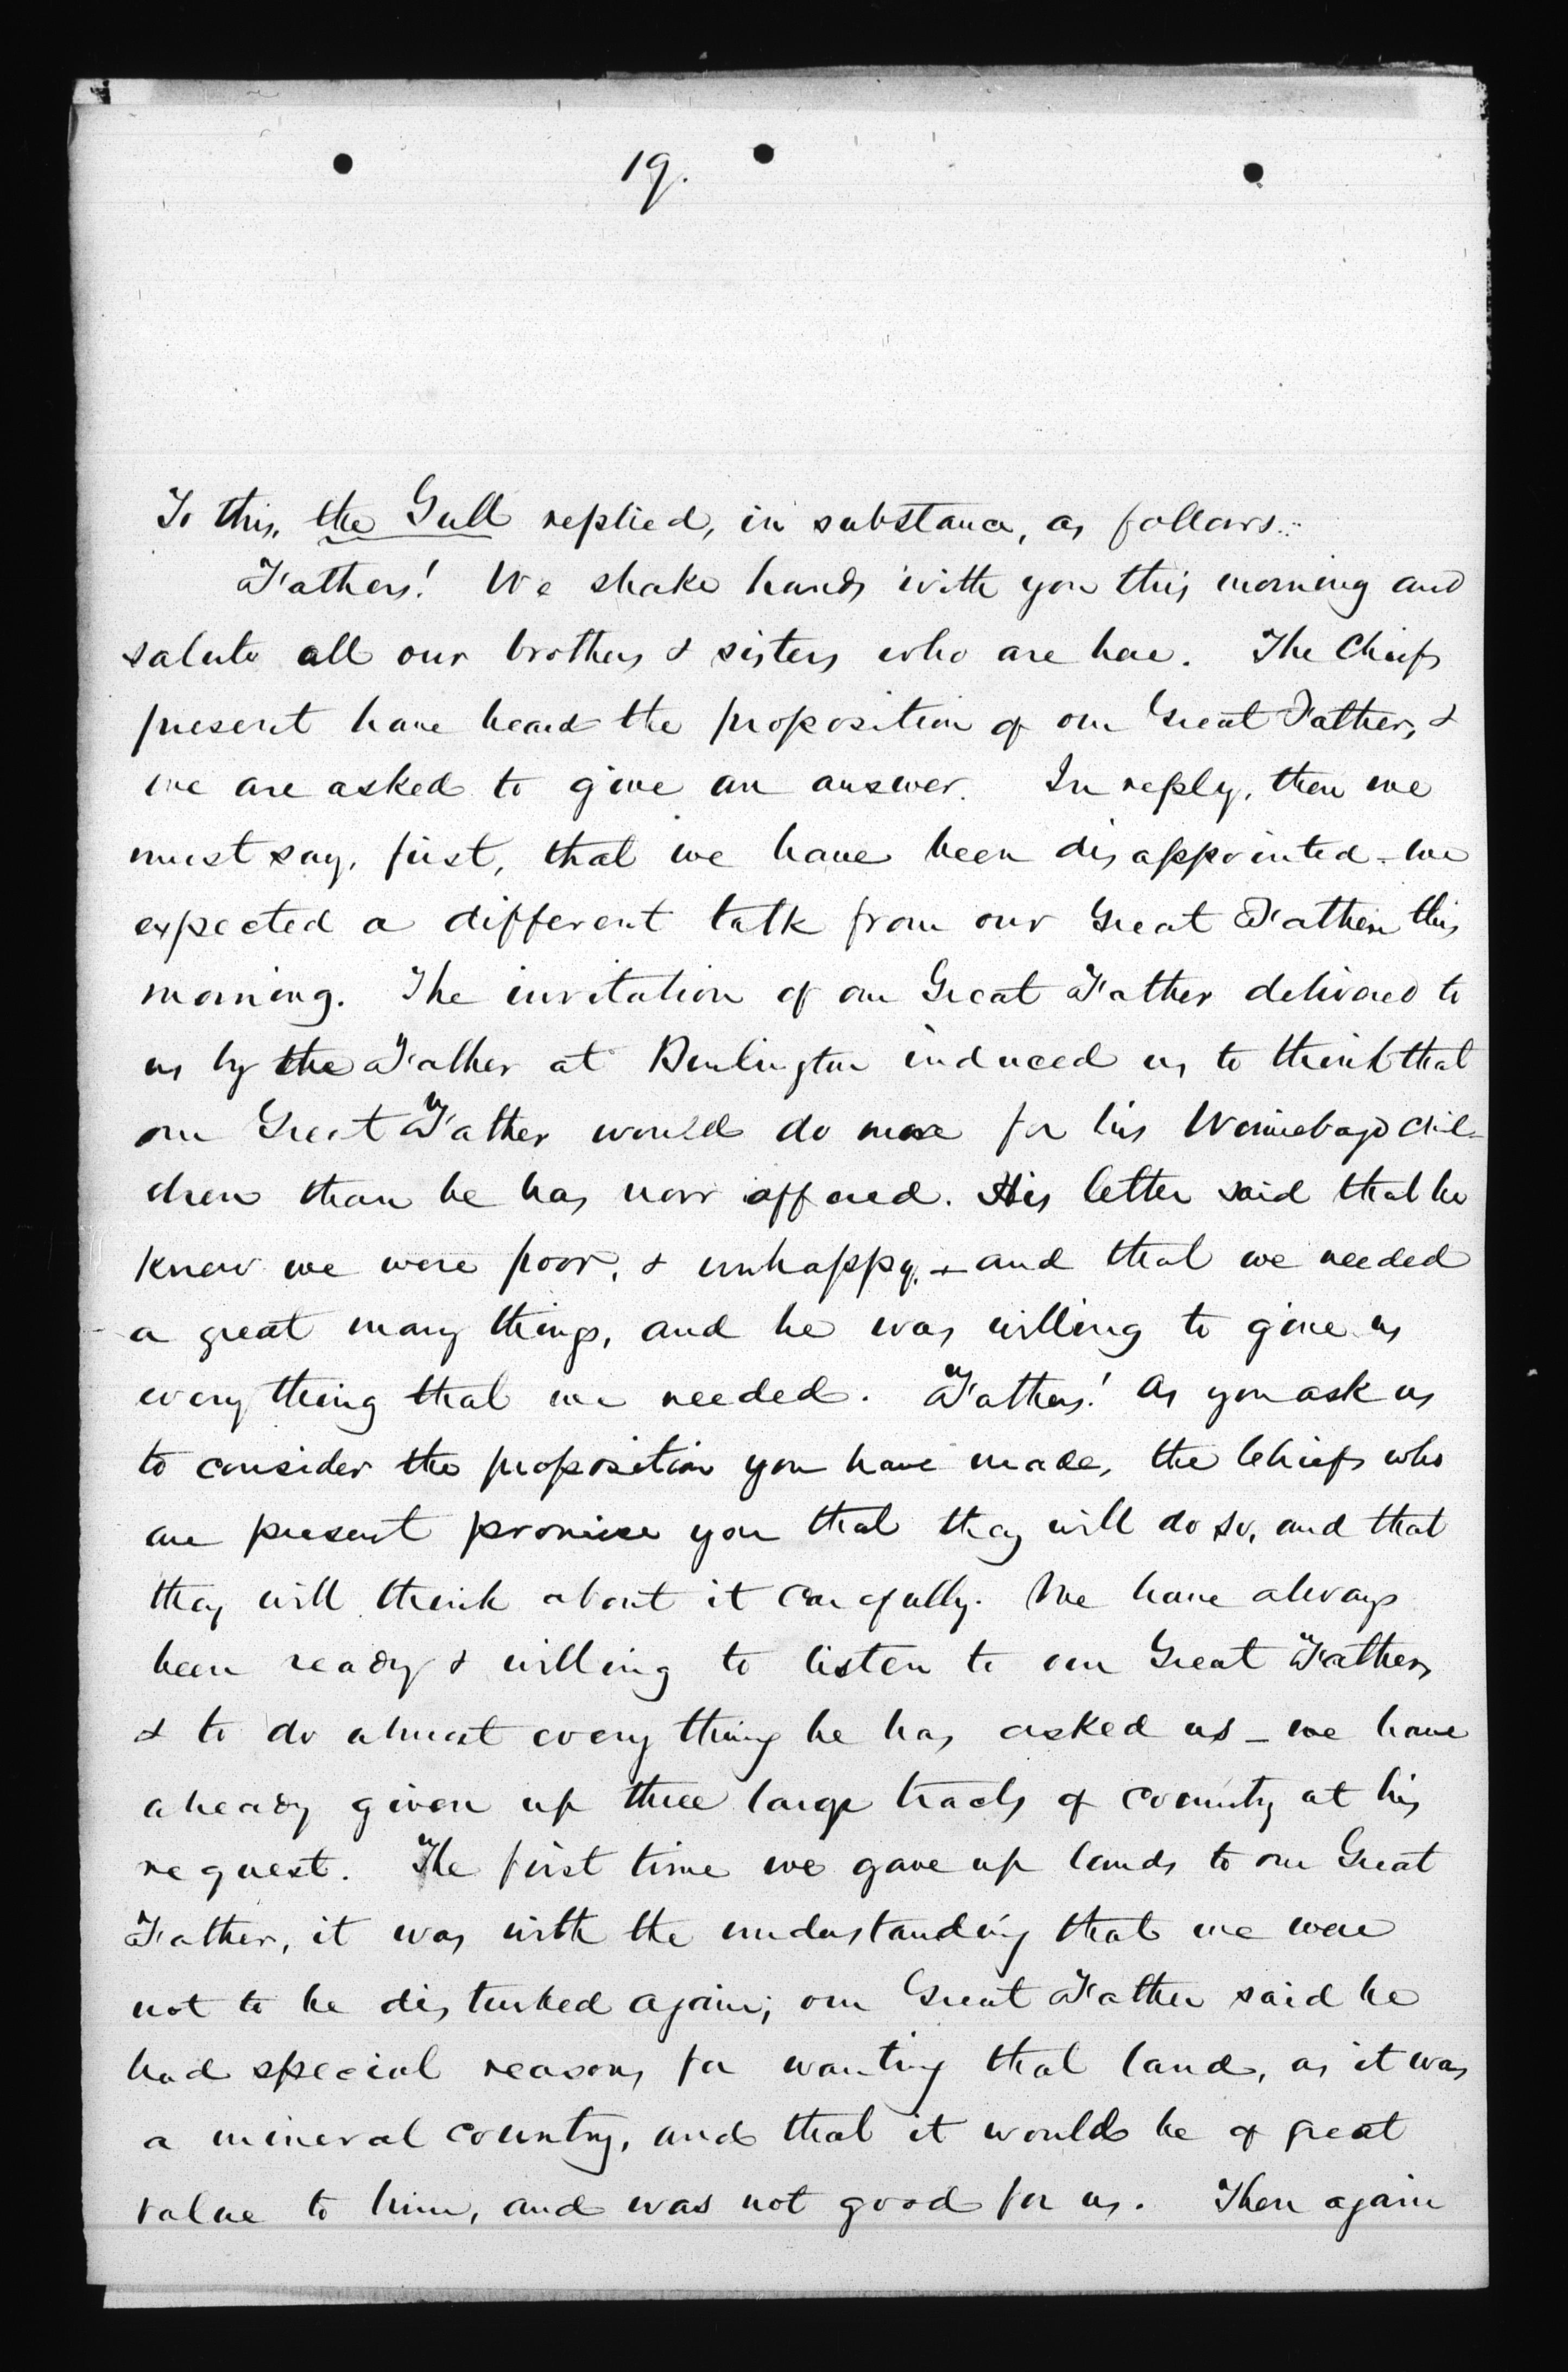 19.
To this, the Gull replied, in substance, as follows:
Fathers! We shake hands with you this morning and
salute all our brothers & sisters who are here. The Chiefs
present have heard the proposition of our Great Father, &
we are asked to give an answer. In reply, then we
must say, first, that we have been disappointed - we
expected a different talk from our Great Father this
morning. The invitation of our Great Father delivered to
us by the Father at Burlington induced us to think that
our Great Father would do more for his Winnebago chil-
dren than he has now offered. His letter said that he
knew we were poor, & unhappy, - and that we needed
a great many things, and he was willing to give us
every thing that we needed. Fathers! As you ask us
to consider the proposition you have made, the Chiefs who
are present promise you that they will do so, and that
they will think about it carefully. We have always
been ready & willing to listen to our Great Father,
& to do almost every thing he has asked us - we have
already given up three large tracts of country at his
request. The first time we gave up lands to our Great
Father, it was with the understanding that we were
not to be disturbed again; our Great Father said he
had special reasons for wanting that land, as it was
a mineral country, and that it would be of great
value to him, and was not good for us. Then again